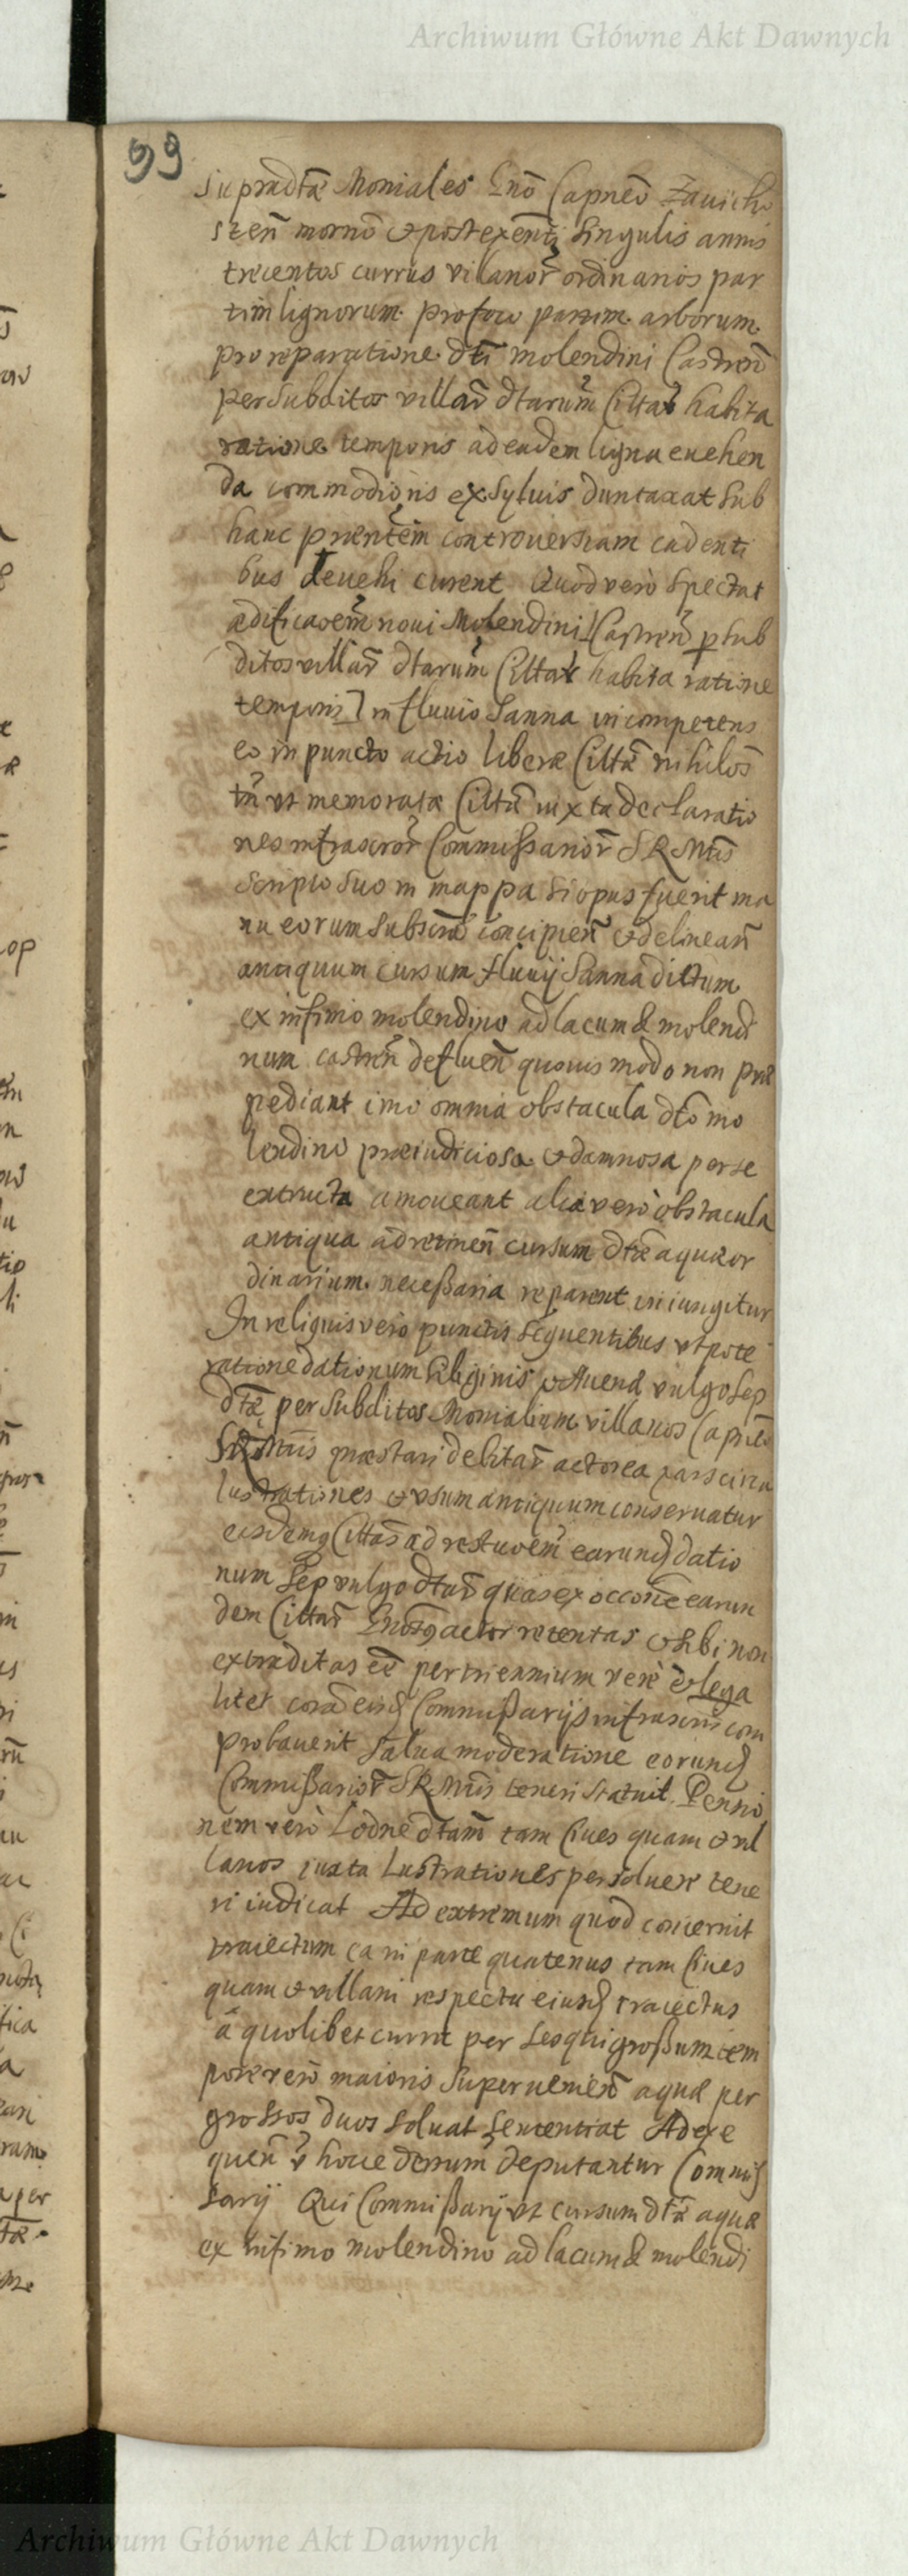 Archiwum Główne Akt Dawnych
99
supradtã Moniales Gnõ Capneõ Zauicho
szeñ mornõ et post exenti singulis annis
trecentos currus villanor ordinarios par
tim lignorum pro foco partim arborum
pro reparatione dti molendini Castreñ
per Subditos villar̃ dtarum Cittar habita
ratione temporis ad eadem ligna euehen
da commodioris ex syluis duntaxat sub
hanc prientem controuersiam cadenti
bus deuehi curent Quod vero spectat
ædificaoem noui Molendini [Castreñ p sub
ditos villar̃ dtarum Cittar habita ratione
temporis] in fluuio Sanna incompetens
eo in puncto actio liberæ Cittã nihilos
tñ vt memoratæ Cittã iuxta declaratio
nes infrascror Commissarior̃ SRMtis
scripto suo in mappa si opus fuerit ma
nu eorum subscrã concipieñ et delineañ
antiquum cursum fluuij Sanna dictum
ex infimo molendino ad lacum & molendi
num castreñ defluen quouis modo non præ
pediant imo omnia obstacula dto mo
lendino præiudiciosa et damnosa per se
extructa amoueant alia vero obstacula
antiqua ad retineñ cursum dtæ aquæ or
dinarium necessaria reparent iniungitur
In reliquis vero punctis sequentibus vtpote
ratione dationum siliginis et Auenæ vulgo sep
dtæ per Subditos Monialium villanos Capneo
SRMtis præstari debitar̃ actorea pars circa
lustrationes et vsum antiquum conseruatur
eisdemq Cittas ad restuoem earund datio
num sep vulgo dtar̃ quas ex occone earun
dem Cittar̃ Gnosus actor retentas et sibi non
extraditas eẽ per triennium vere et lega
liter corã eisd Commissarijs infrascris com
probauerit salua moderatione eorund
Commissarior̃ SRMtis teneri statuit. Pensio
nem vero Lodne dtam tam Ciues quam et vil
lanos iuxta Lustrationes persoluere tene
ri iudicat Ad extremum quod concernit
traiectum ea in parte quatenus tam Ciues
quam et villani respectu eiusd traiectus
à quolibet curru per sesquigrossum tem
pore vero maioris superuenieñ aquæ per
grossos duos soluat sententiat Ad exe
queñ v hocce detum deputantur Commis
sarij Qui Commissarij vt cursum dtæ aquæ
ex infimo molendino ad lacum & molendi
Archiwum Główne Akt Dawnych